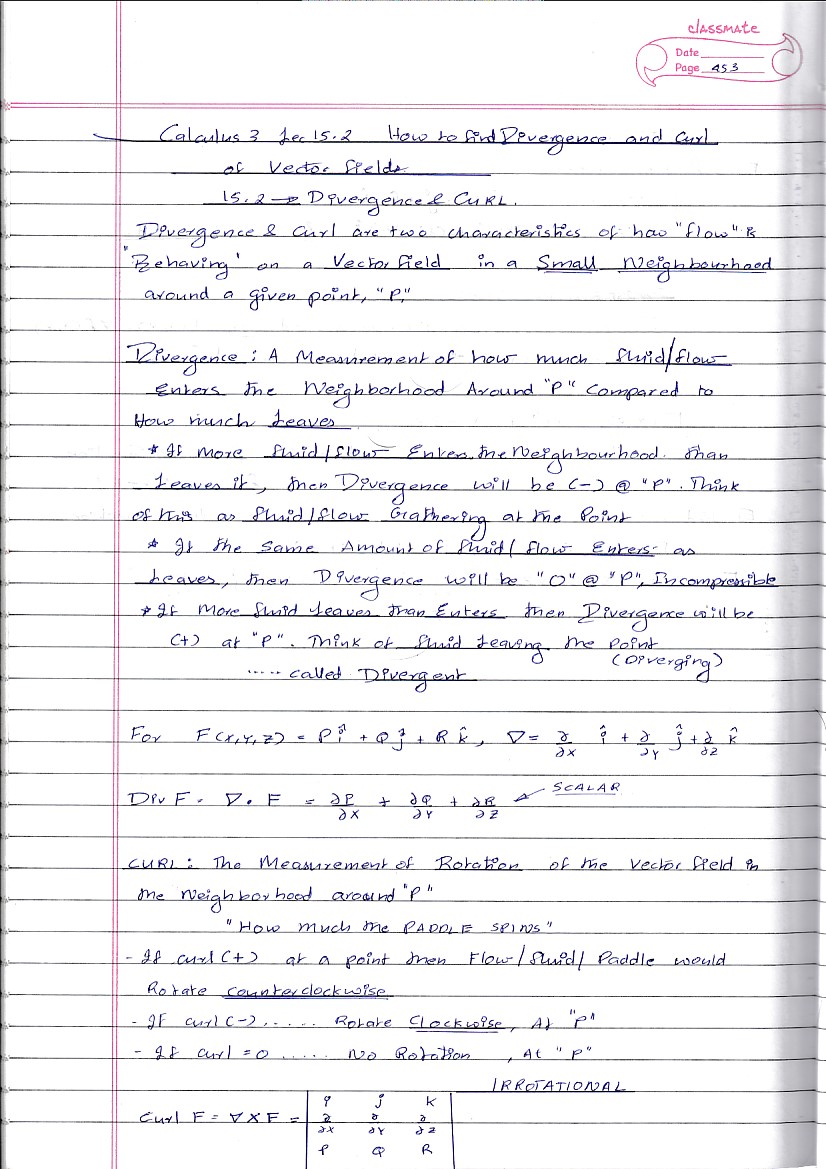 classmate
Date
Page 453
Calculus 3 Lec 15.2 How to find Divergence and Curl
of Vector fields
15.2 → Divergence & CURL.
Divergence & Curl are two characteristics of how "flow" is
"Behaving' on a Vector field in a Small Neighbourhood
around a given point, "P,"
Divergence : A Measurement of how much fluid/flow
Enters the Neighborhood Around "P" Compared to
How much Leaves
* If More fluid/flow Enters the Neighbourhood than
Leaves it, then Divergence will be (-) @ "P". Think
of this as fluid/flow Grathering at the Point
* If the Same Amount of fluid/flow Enters as
Leaves, then Divergence will be "0" @ "P", Incompressible
* If More fluid Leaves than Enters then Divergence will be
(+) at "P". Think of fluid Leaving the point
(Diverging)
..... called Divergent
For F(x,y,z) = P î + Q ĵ + R k̂, ∇ = ∂/∂x î + ∂/∂y ĵ + ∂/∂z k̂
Div F = ∇ • F = ∂P/∂x + ∂Q/∂y + ∂R/∂z ← SCALAR
CURL : The Measurement of Rotation of the vector field in
the Neighborhood around "P"
"How much the PADDLE SPINS"
- If curl (+) at a point then Flow/fluid/Paddle would
Rotate counterclockwise
- If curl (-) ..... Rotate Clockwise, At "P"
- If curl = 0 ..... No Rotation , At "P"
IRROTATIONAL
i j k
Curl F = ∇ X F = ∂/∂x ∂/∂y ∂/∂z
P Q R